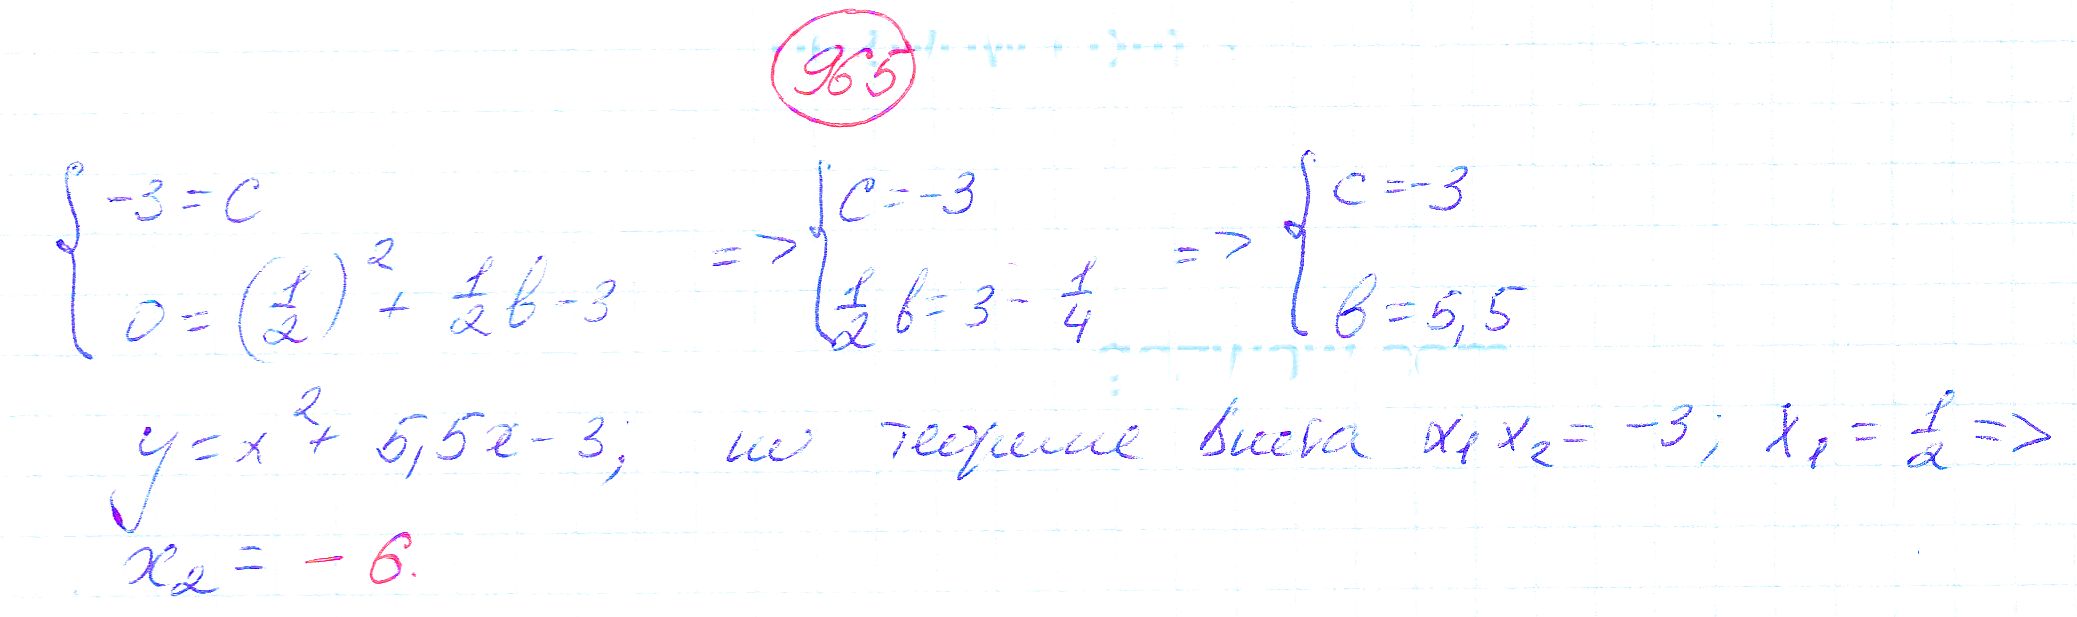 965
{ -3 = c => { c = -3 => { c = -3
0 = (1/2)² + 1/2 в - 3 1/2 в = 3 - 1/4 в = 5,5
y = x² + 5,5x - 3; по теореме Виета x₁x₂ = -3; x₁ = 1/2 =>
x₂ = - 6.